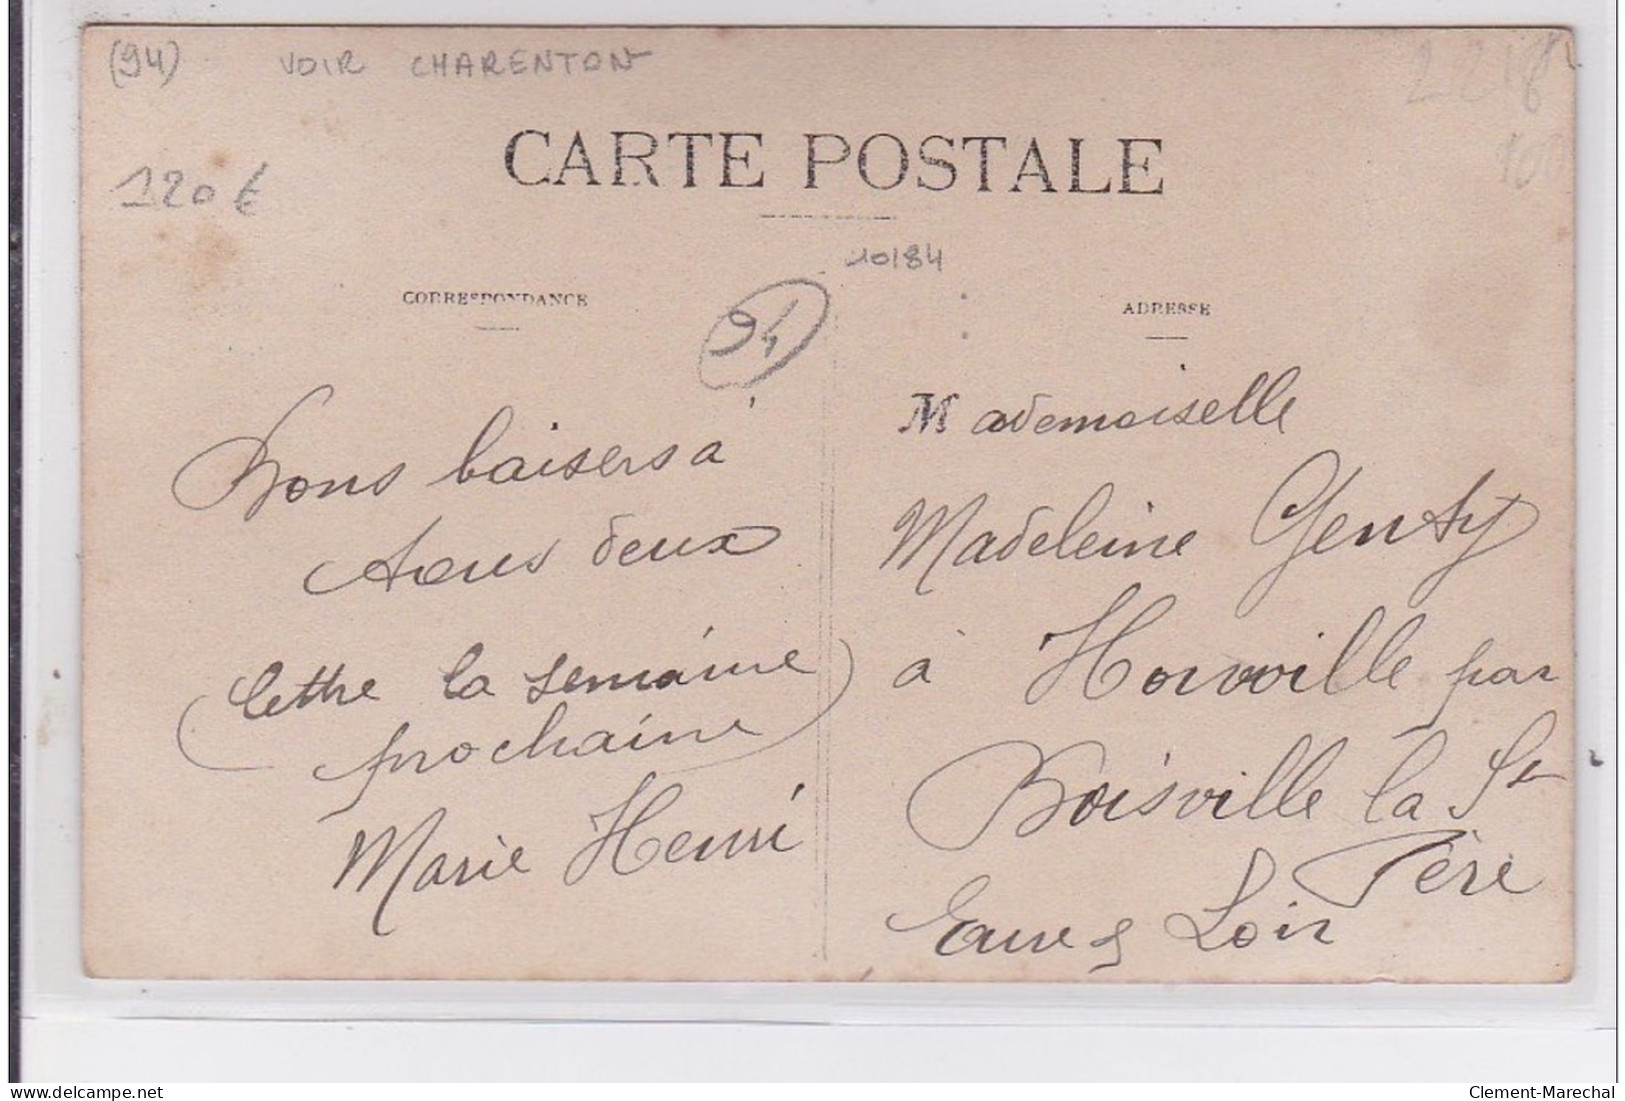 (94) VOIR CHARENTON
120 €
CARTE POSTALE
10/84
CORRESPONDANCE
94
ADRESSE
Bons baisers à
tous deux
(lettre la semaine
prochaine)
Marie Henri
Mademoiselle
Madeleine Genty
à Honville par
Boisville la St
Père
Eure & Loir
Clement-Marechal
www.delcampe.net